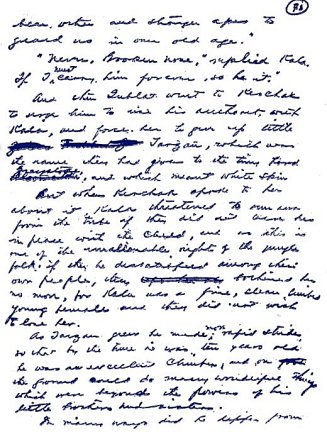 bear other and stronger apes to
guard us in our old age."
"Never, Broken Nose," replied Kala.
If I must carry him forever, so be it."
And then Tublat went to Kerchak
to urge him to use his authority with
Kala, and force her to give up little
Tarzan, which was
the name they had given to the tiny Lord
Greystoke, and which meant White Skin
But when Kerchak spoke to her
about it Kala threatened to run away
from the tribe if they did not leave her
in peace with the child, and as this is
one of the inalienable rights of the jungle
folk if they be dissatisfied among their
own people, they bothered her
no more, for Kala was a fine, clean limbed
young female and they did not wish
to lose her.
As Tarzan grew he made more rapid strides,
so that by the time he was ten years old
he was an excellent climber, and on
the ground could do many wonderful things
which were beyond the powers of his
little brothers and sisters.
In many ways did he differ from